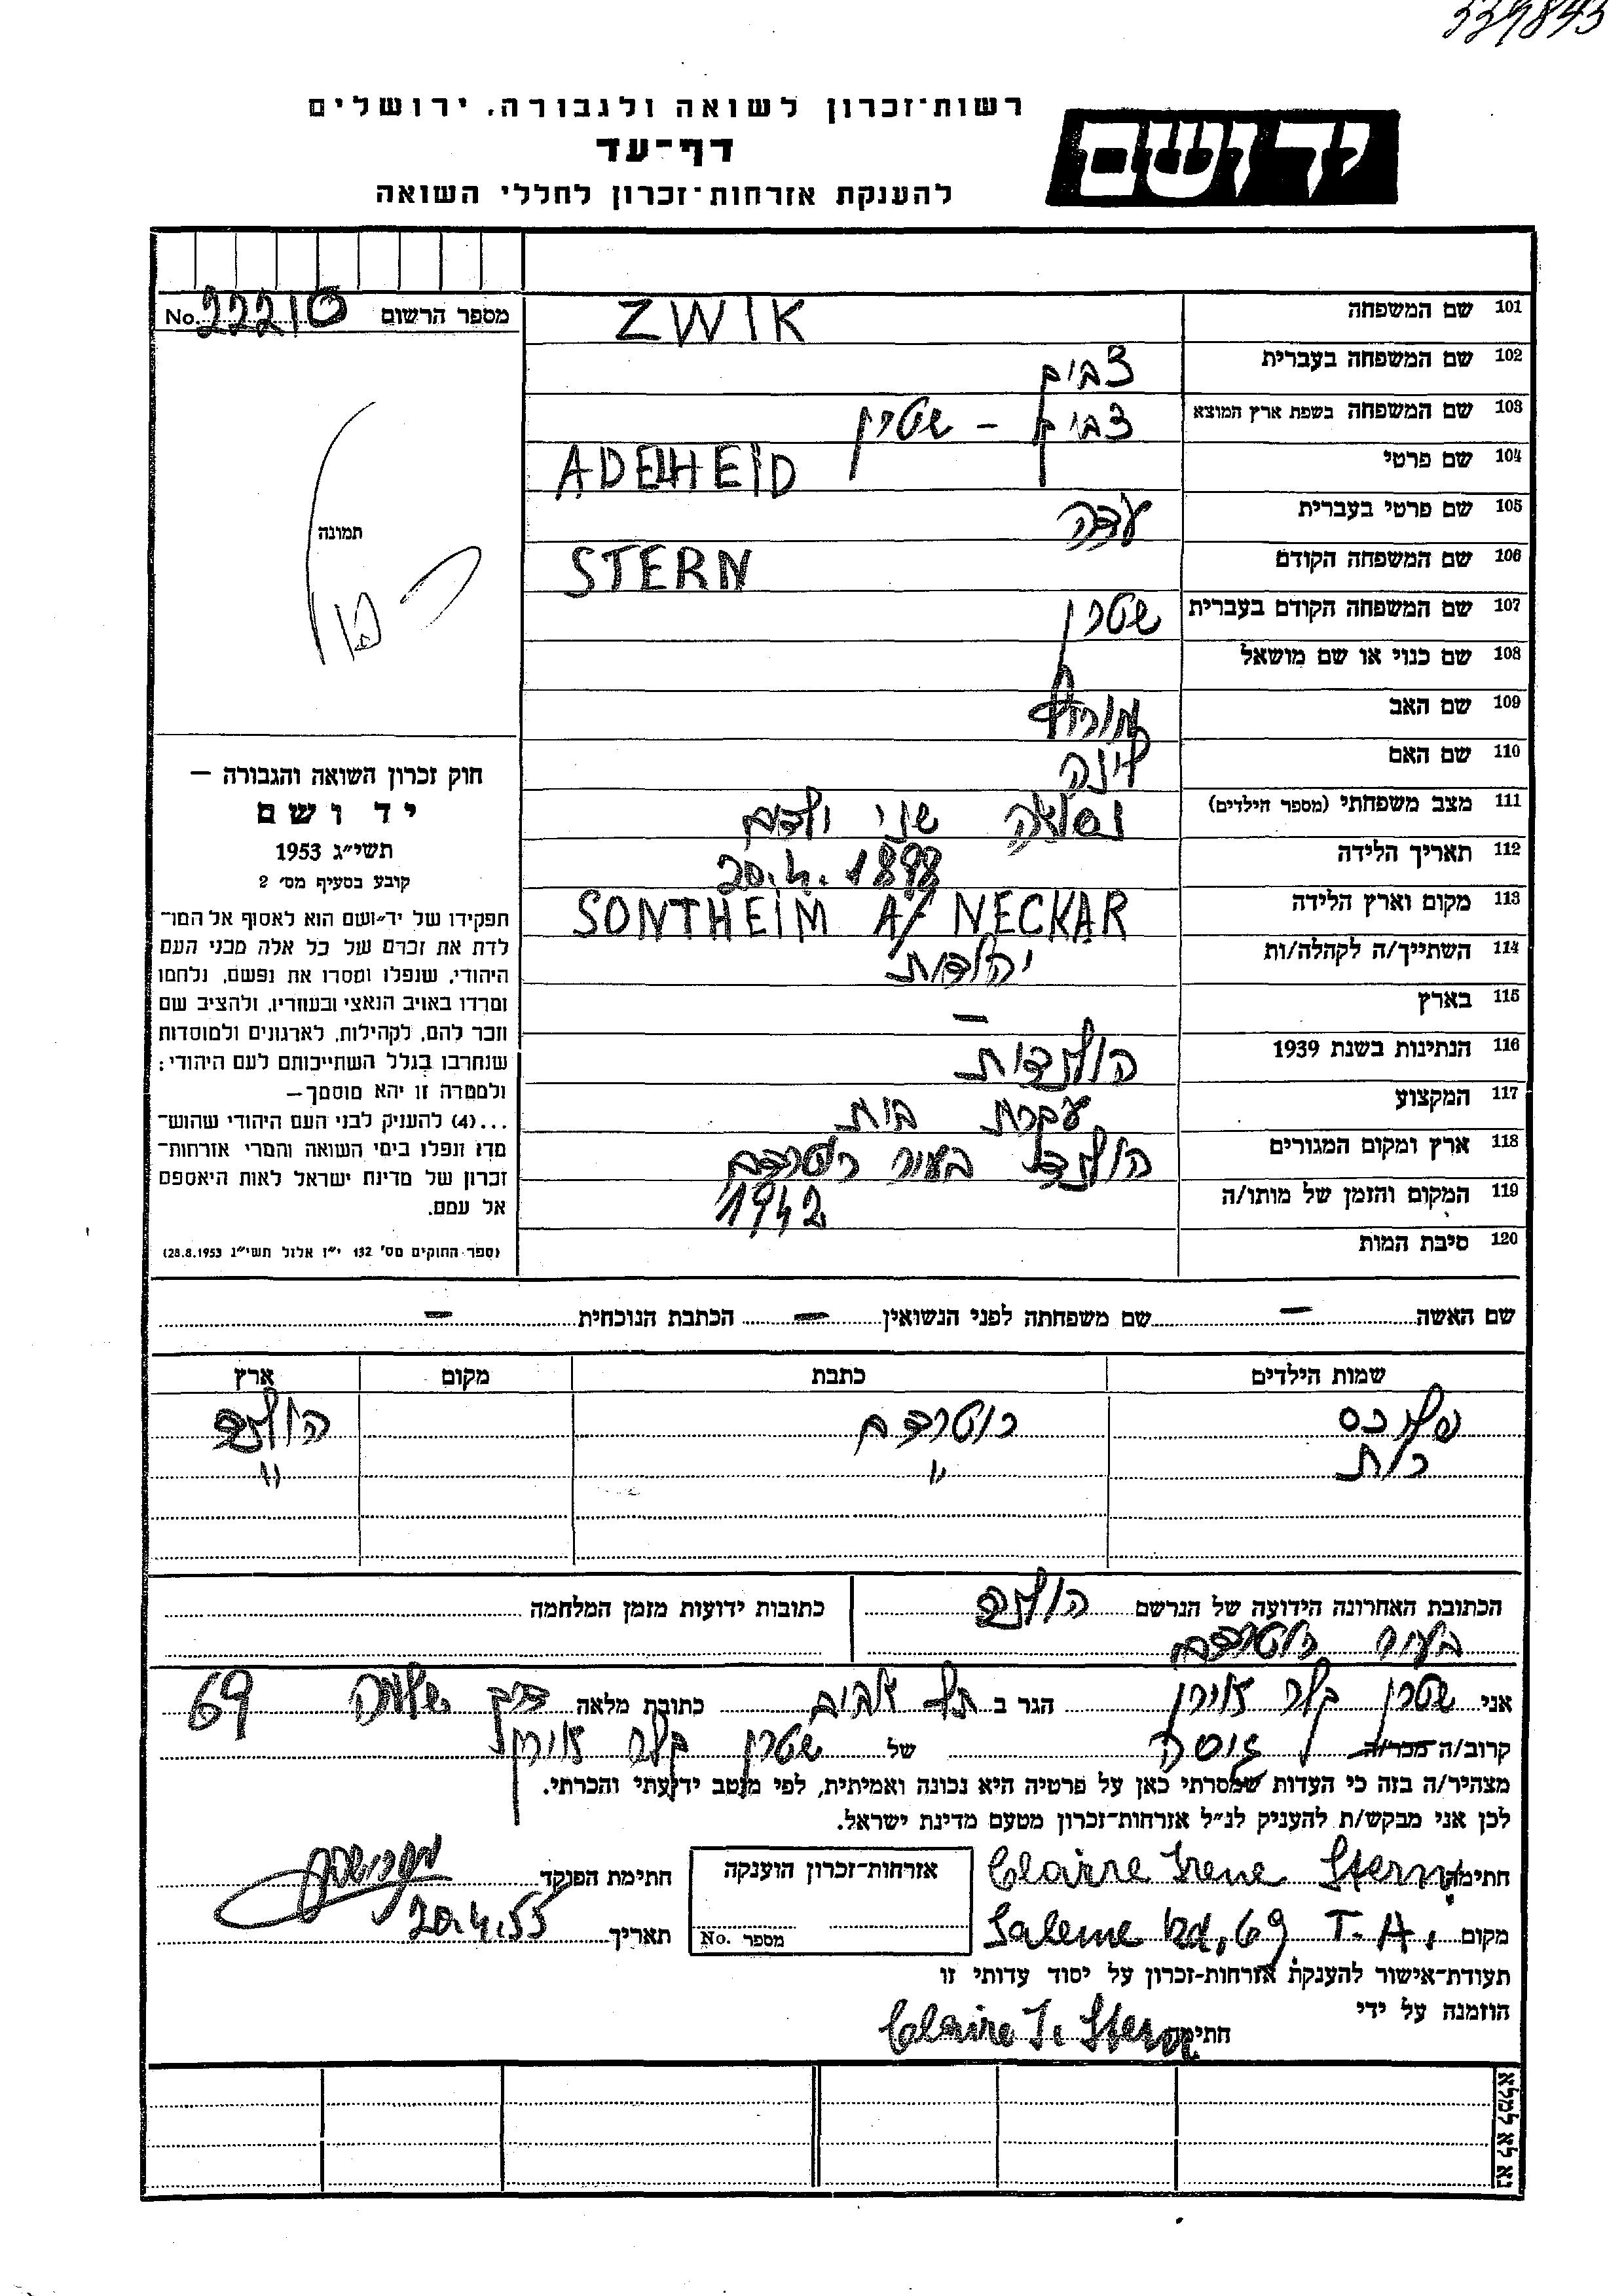 339843
רשות־זכרון לשואה ולגבורה, ירושלים
דף־עד
להענקת אזרחות־זכרון לחללי השואה
יד ושם
מספר הרשום No. 22210
תמונה
101 שם המשפחה ZWIK
102 שם המשפחה בעברית צביק
103 שם המשפחה בשפת ארץ המוצא צביק – שטרן
104 שם פרטי ADELHEID
105 שם פרטי בעברית עדה
106 שם המשפחה הקודם STERN
107 שם המשפחה הקודם בעברית שטרן
108 שם כנוי או שם מושאל
109 שם האב
110 שם האם לינה
111 מצב משפחתי (מספר הילדים) נשואה שני ילדים
112 תאריך הלידה 20.4.1898
113 מקום וארץ הלידה SONTHEIM A/ NECKAR
114 השתייך/ה לקהלה/ות יהלדות
115 בארץ –
116 הנתינות בשנת 1939 הולנדית
117 המקצוע עקרת בית
118 ארץ ומקום המגורים הולנד בעיר רוטרדם
119 המקום והזמן של מותו/ה 1942
120 סיבת המות
חוק זכרון השואה והגבורה —
יד ושם
תשי״ג 1953
קובע בסעיף מס׳ 2
תפקידו של יד־ושם הוא לאסוף אל המו־
לדת את זכרם של כל אלה מבני העם
היהודי, שנפלו ומסרו את נפשם, נלחמו
ומרדו באויב הנאצי ובעוזריו, ולהציב שם
וזכר להם, לקהילות, לארגונים ולמוסדות
שנחרבו בגלל השתייכותם לעם היהודי;
ולמטרה זו יהא מוסמך—
...(4) להעניק לבני העם היהודי שהוש־
מדו ונפלו בימי השואה והמרי אזרחות־
זכרון של מדינת ישראל לאות היאספם
אל עמם.
(ספר החוקים מס׳ 132 י״ז אלול תשי״ג 28.8.1953)
שם האשה – שם משפחתה לפני הנשואין – הכתבת הנוכחית –
שמות הילדים כתבת מקום ארץ
רוטרדם הולנד
רות " "
הכתובת האחרונה הידועה של הנרשם הולנד
בעיר רוטרדם
כתובות ידועות מזמן המלחמה
אני שטרן קלר אירן הגר ב תל אביב כתובת מלאה דרך שלמה 69
קרוב/ה מכר/ה גיסה של שטרן קלר אירן
מצהיר/ה בזה כי העדות שמסרתי כאן על פרטיה היא נכונה ואמיתית, לפי מיטב ידיעתי והכרתי.
לכן אני מבקש/ת להעניק לנ״ל אזרחות־זכרון מטעם מדינת ישראל.
חתימה Claire Irene Stern
אזרחות־זכרון הוענקה
מספר No.
חתימת הפוקד
מקום Saleme Rd. 69 T.A.
תאריך 20.4.55
תעודת־אישור להענקת אזרחות־זכרון על יסוד עדותי זו
הוזמנה על ידי
חתימה Claire I. Stern
נא לא למלא